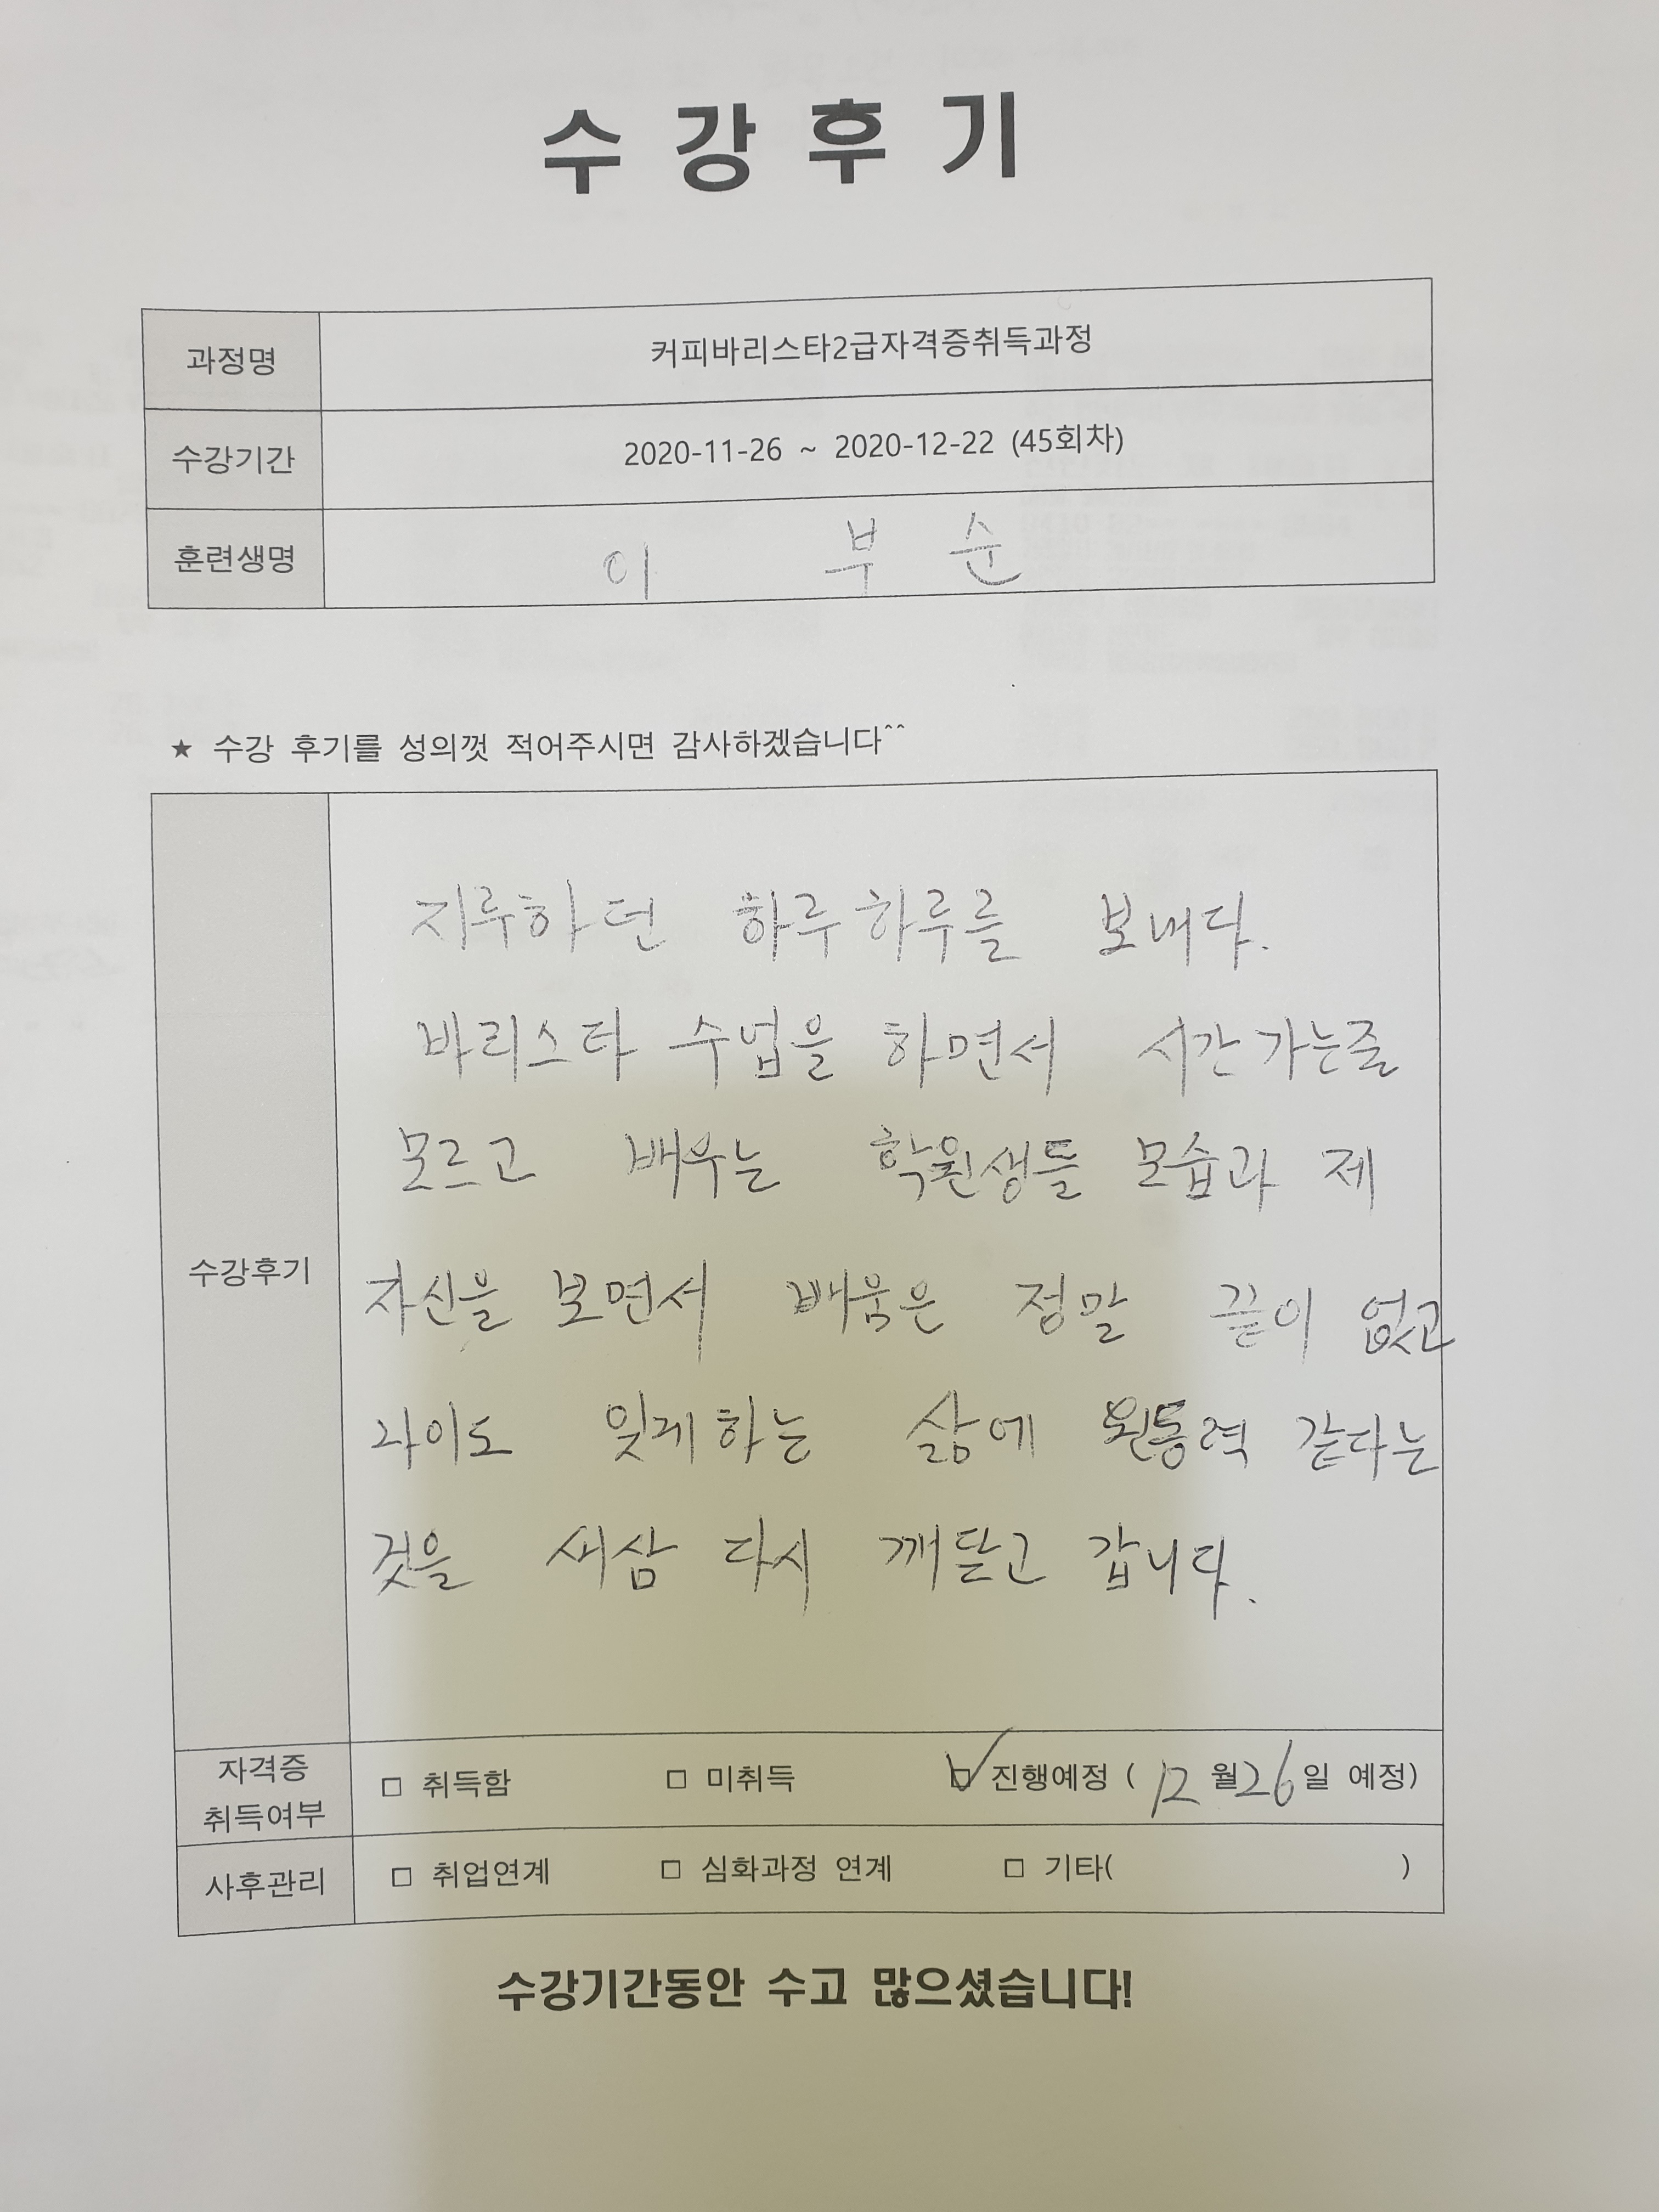 수강후기
과정명 커피바리스타2급자격증취득과정
수강기간 2020-11-26 ~ 2020-12-22 (45회차)
훈련생명 이 부 순
★ 수강 후기를 성의껏 적어주시면 감사하겠습니다^^
수강후기
지루하던 하루하루를 보내다.
바리스타 수업을 하면서 시간가는줄
모르고 배우는 학원생들 모습과 제
자신을 보면서 배움은 정말 끝이 없고
나이도 잊게하는 삶에 원동력 같다는
것을 새삼 다시 깨닫고 갑니다.
자격증
취득여부 □ 취득함 □ 미취득 ☑ 진행예정 ( 12 월 26 일 예정)
사후관리 □ 취업연계 □ 심화과정 연계 □ 기타( )
수강기간동안 수고 많으셨습니다!